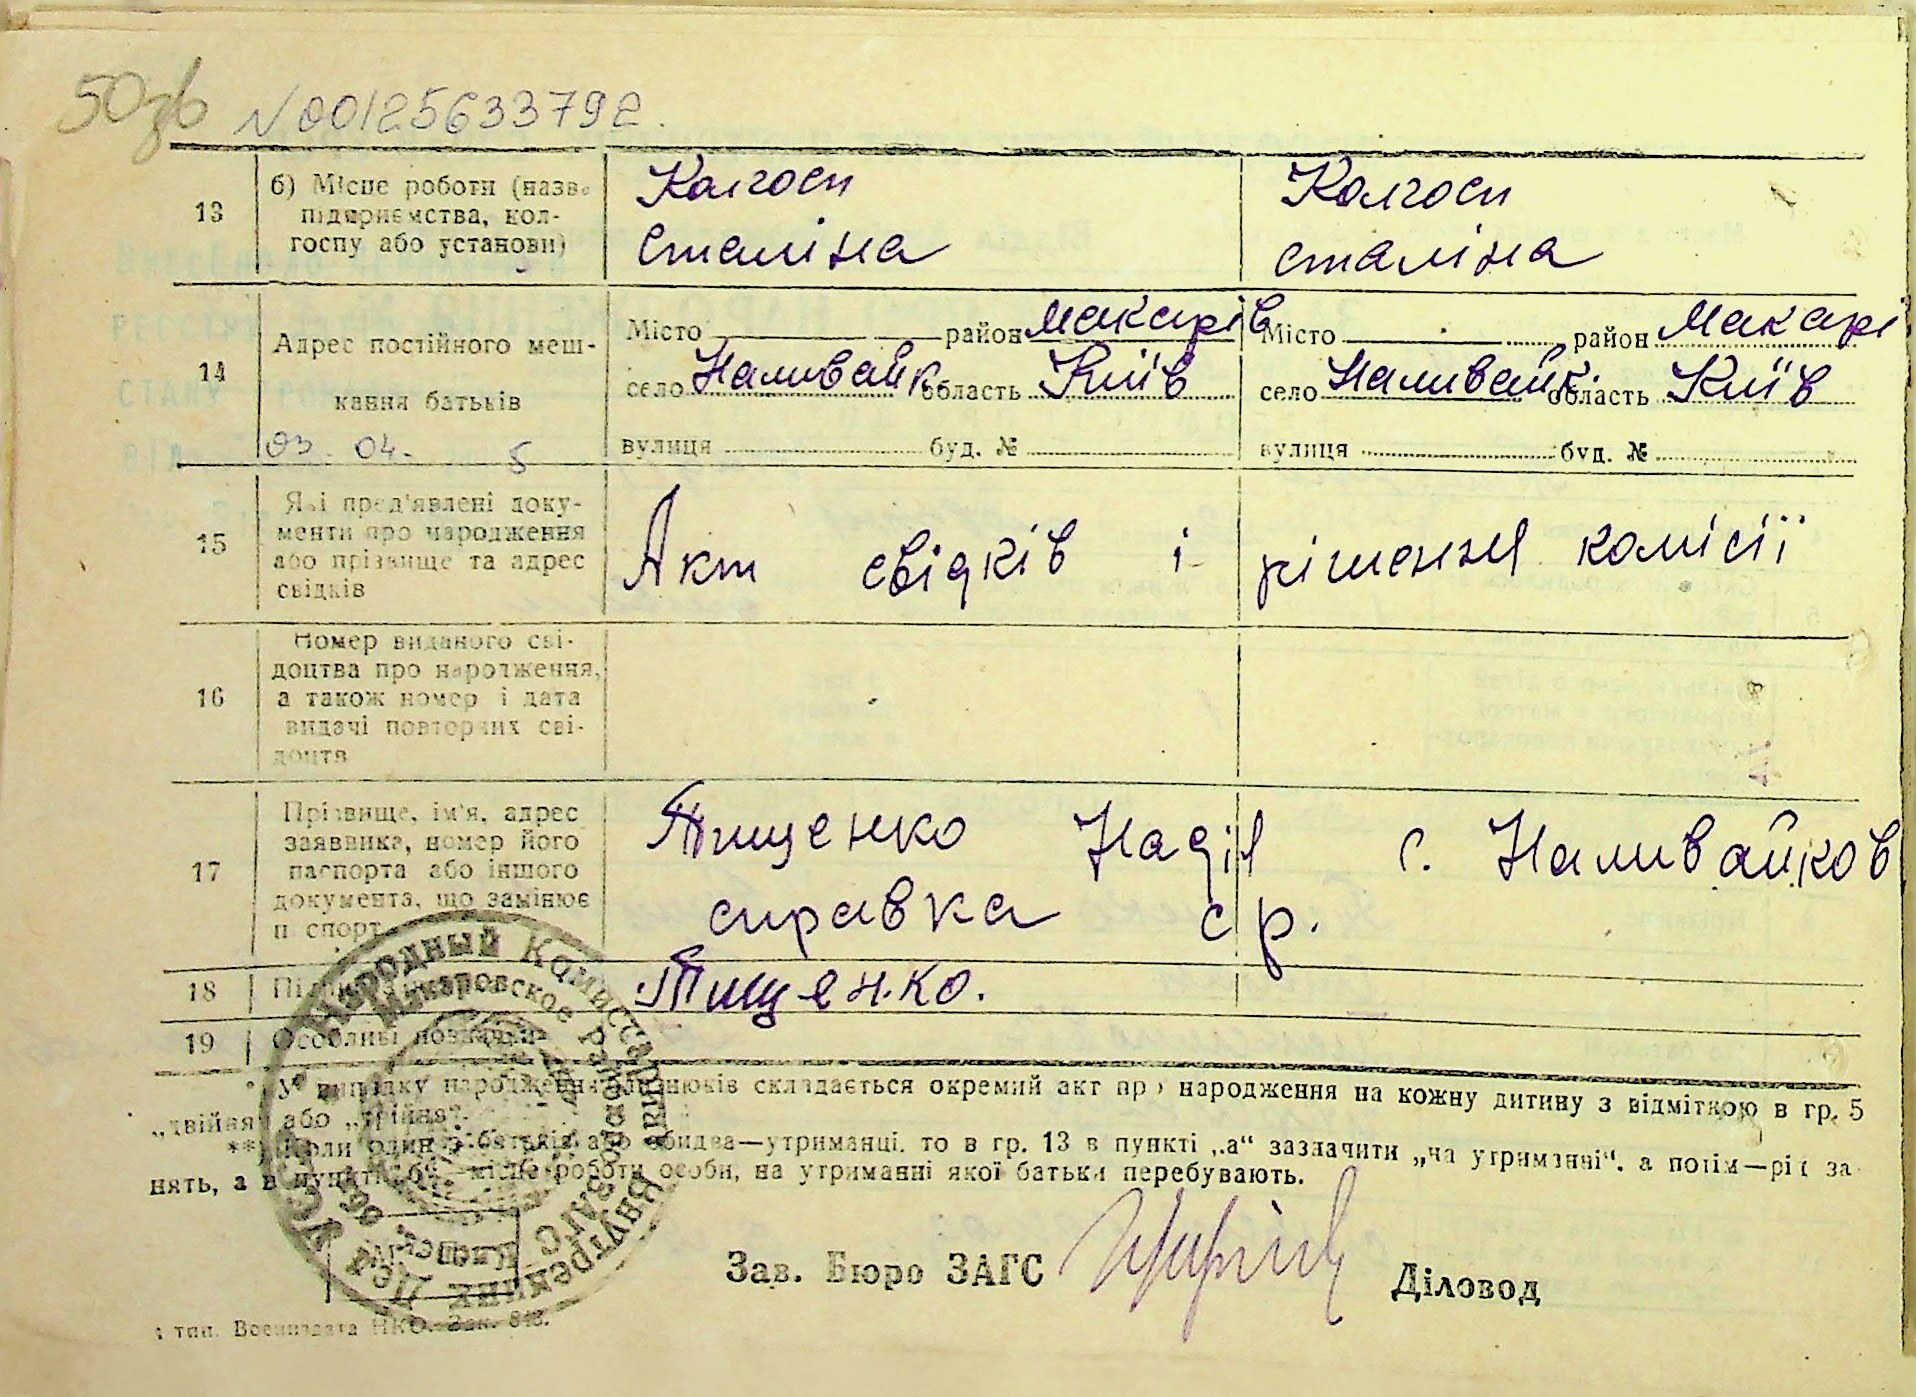 N00125633792.
13
б) Місце роботи (назва
підприємства, кол-
госпу або установи)
Колгосп
сталіна
Колгосп
сталіна
14
Адрес постійного меш-
кання батьків
03. 04. 5
Місто район Макарів
село Наливайк. область Київ
вулиця буд. №
Місто район Макарі
село Наливайк. область Київ
вулиця буд. №
15
Які пред'явлені доку-
менти про народження
або прізвище та адрес
свідків
Акт свідків і рішення комісії
16
Номер виданого сві-
доцтва про народження,
а також номер і дата
видачі повторних сві-
доцтв
17
Прізвище, ім'я, адрес
заявника, номер його
паспорта або іншого
документа, що замінює
п спорт
Тищенко Надія с. Наливайков
справка с/р.
18
Тищенко.
19
Особливі
*) У випадку народження близнюків складається окремий акт про народження на кожну дитину з відміткою в гр. 5
„двійня“ або „трійня“.
**) Коли один з батьків або обидва—утриманці, то в гр. 13 в пункті „а“ зазначити „на утриманні“, а потім—рід за-
нять, а в пункті „б“—місце роботи особи, на утриманні якої батьки перебувають.
Народный Комиссариат Внутренних Дел УССР
Макаровское Районное ЗАГС
Киевск. обл.
Зав. Бюро ЗАГС
Діловод
тип. Воениздата НКО. Зак.